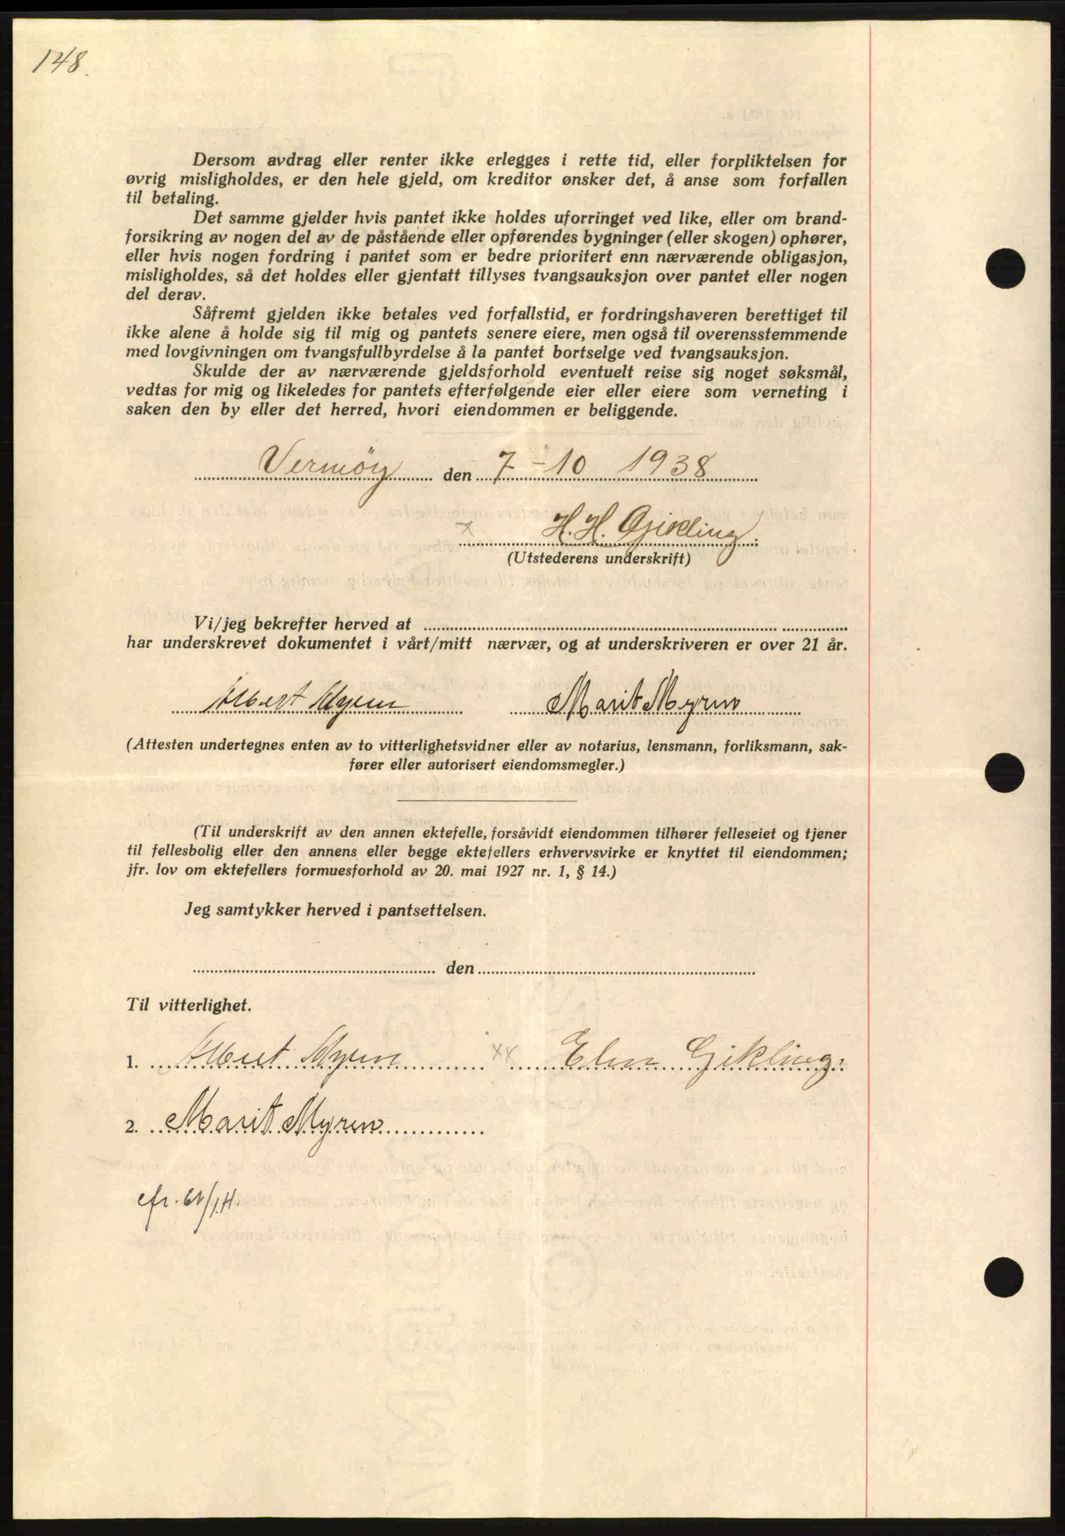 148.
Dersom avdrag eller renter ikke erlegges i rette tid, eller forpliktelsen for
øvrig misligholdes, er den hele gjeld, om kreditor ønsker det, å anse som forfallen
til betaling.
Det samme gjelder hvis pantet ikke holdes uforringet ved like, eller om brand-
forsikring av nogen del av de påstående eller opførendes bygninger (eller skogen) ophører,
eller hvis nogen fordring i pantet som er bedre prioritert enn nærværende obligasjon,
misligholdes, så det holdes eller gjentatt tillyses tvangsauksjon over pantet eller nogen
del derav.
Såfremt gjelden ikke betales ved forfallstid, er fordringshaveren berettiget til
ikke alene å holde sig til mig og pantets senere eiere, men også til overensstemmende
med lovgivningen om tvangsfullbyrdelse å la pantet bortselge ved tvangsauksjon.
Skulde der av nærværende gjeldsforhold eventuelt reise sig noget søksmål,
vedtas for mig og likeledes for pantets efterfølgende eier eller eiere som verneting i
saken den by eller det herred, hvori eiendommen er beliggende.
Vermøy den 7-10 1938
x H. H. Gjikling.
(Utstederens underskrift)
Vi/jeg bekrefter herved at
har underskrevet dokumentet i vårt/mitt nærvær, og at underskriveren er over 21 år.
Albert Myren Marit Myren
(Attesten undertegnes enten av to vitterlighetsvidner eller av notarius, lensmann, forliksmann, sak-
fører eller autorisert eiendomsmegler.)
(Til underskrift av den annen ektefelle, forsåvidt eiendommen tilhører felleseiet og tjener
til fellesbolig eller den annens eller begge ektefellers erhvervsvirke er knyttet til eiendommen;
jfr. lov om ektefellers formuesforhold av 20. mai 1927 nr. 1, § 14.)
Jeg samtykker herved i pantsettelsen.
den
Til vitterlighet.
1. Albert Myren xx Elen Gikling.
2. Marit Myren
cfr.